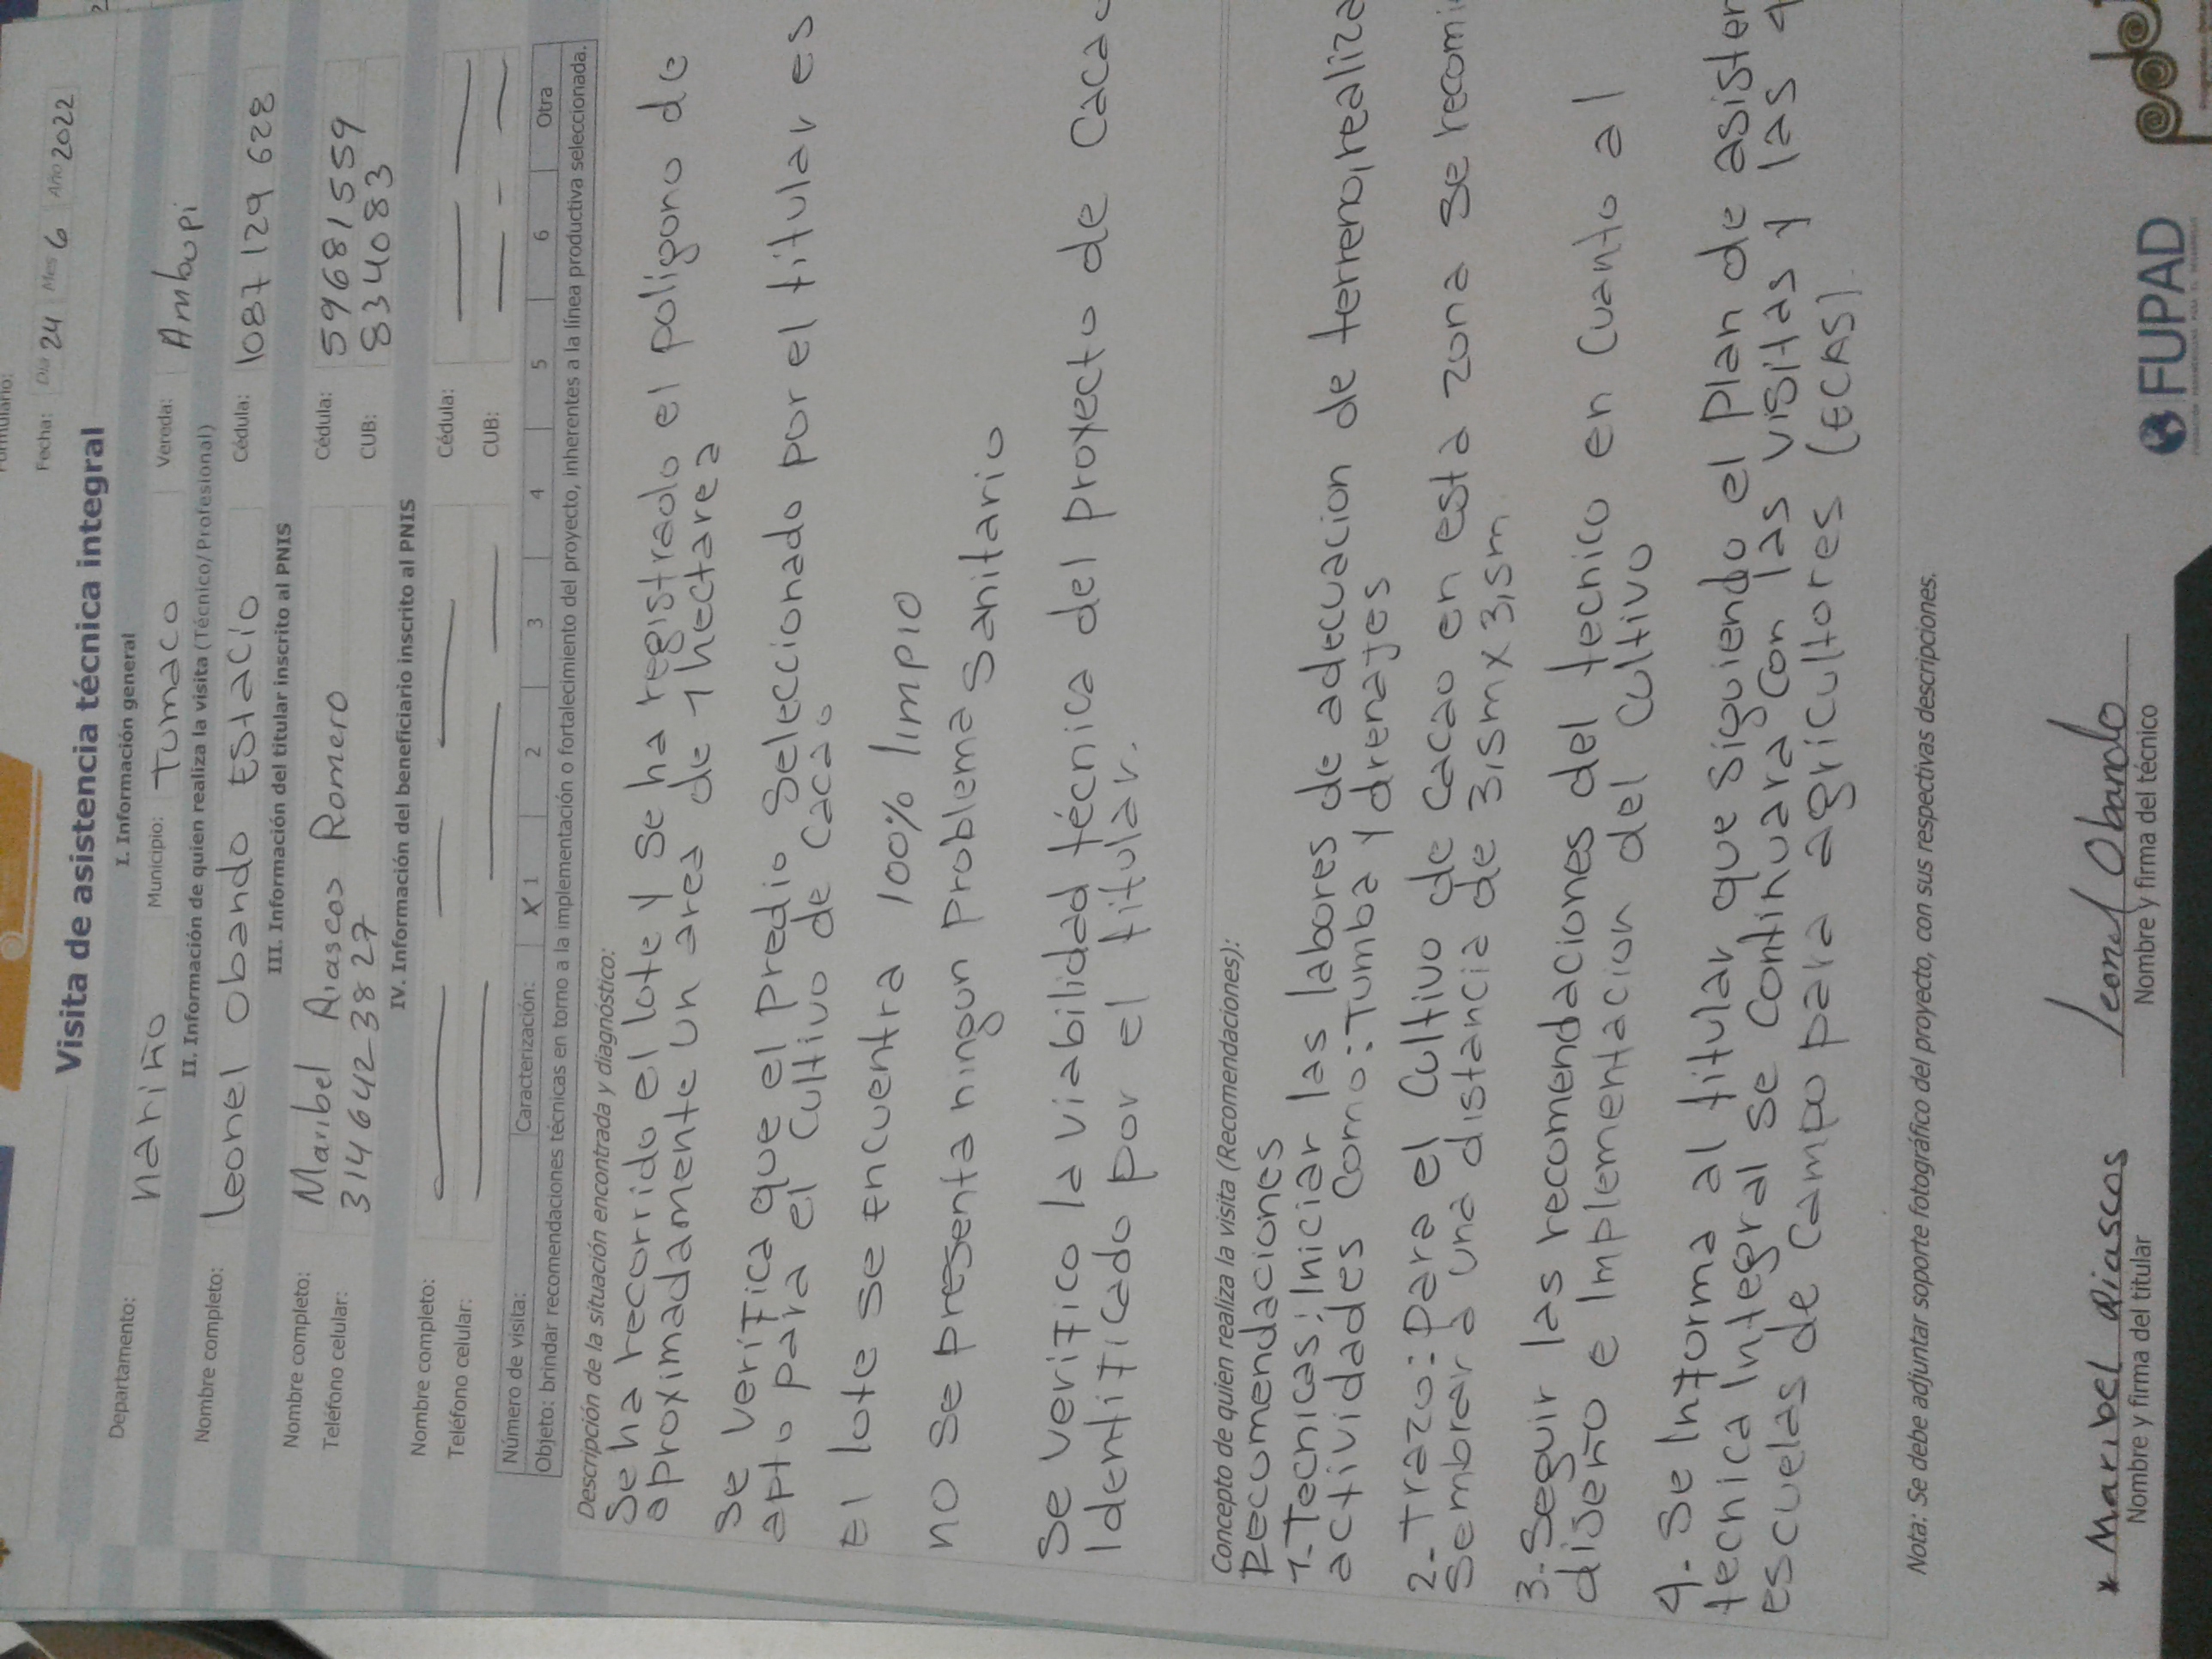 Fecha: Día 24 Mes 6 Año 2022
Visita de asistencia técnica integral
I. Información general
Departamento: nariño Municipio: Tumaco Vereda: Ambupi
II. Información de quien realiza la visita (Técnico/Profesional)
Nombre completo: Leonel Obando Estacio Cédula: 1087129628
III. Información del titular inscrito al PNIS
Nombre completo: Maribel Riascos Romero Cédula: 59681559
Teléfono celular: 3146423827 CUB: 8334083
IV. Información del beneficiario inscrito al PNIS
Nombre completo: Cédula:
Teléfono celular: CUB:
Número de visita: Caracterización: X 1 2 3 4 5 6 Otra
Objeto: brindar recomendaciones técnicas en torno a la implementación o fortalecimiento del proyecto, inherentes a la línea productiva seleccionada.
Descripción de la situación encontrada y diagnóstico:
Se ha recorrido el lote y se ha registrado el poligono de
aproximadamente un area de 1 hectarea
Se verifica que el predio Seleccionado por el titular es
apto para el cultivo de cacao
El lote se encuentra 100% limpio
no se presenta ningun problema sanitario
Se verifico la viabilidad técnica del proyecto de cacao
Identificado por el titular.
Concepto de quien realiza la visita (Recomendaciones):
Recomendaciones
1-Tecnicas: Iniciar las labores de adecuacion de terreno, realiza
actividades como: Tumba y drenajes
2-Trazo: Para el cultivo de cacao en esta zona se
Sembrar a una distancia de 3,5m x 3,5m
3-Seguir las recomendaciones del tecnico en cuanto al
diseño e Implementacion del cultivo
4-Se Informa al titular que siguiendo el Plan de
tecnica Integral se continuara con las visitas y las
escuelas de campo para agricultores (ECAS).
Nota: Se debe adjuntar soporte fotográfico del proyecto, con sus respectivas descripciones.
* Maribel Riascos Leonel Obando
Nombre y firma del titular Nombre y firma del técnico
FUPAD